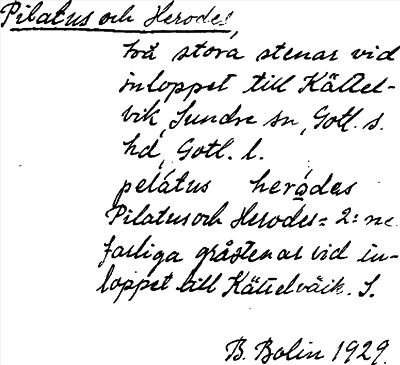 Pilatus och Herodes,
två stora stenar vid
inloppet till Kättel-
vik, Sundre sn, Gotl. s.
hd, Gotl. l.
pelátus heródas
Pilatus och Herodes = 2: ne
farliga gråstenar vid in-
loppet till Kättelväik. S.
B. Bolin 1929.